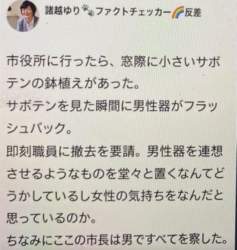 諸越ゆり🐾ファクトチェッカー🌈反差
市役所に行ったら、窓際に小さいサボ
テンの鉢植えがあった。
サボテンを見た瞬間に男性器がフラッ
シュバック。
即刻職員に撤去を要請。男性器を連想
させるようなものを堂々と置くなんてど
うかしているし女性の気持ちをなんだと
思っているのか。
ちなみにここの市長は男ですべてを察した。